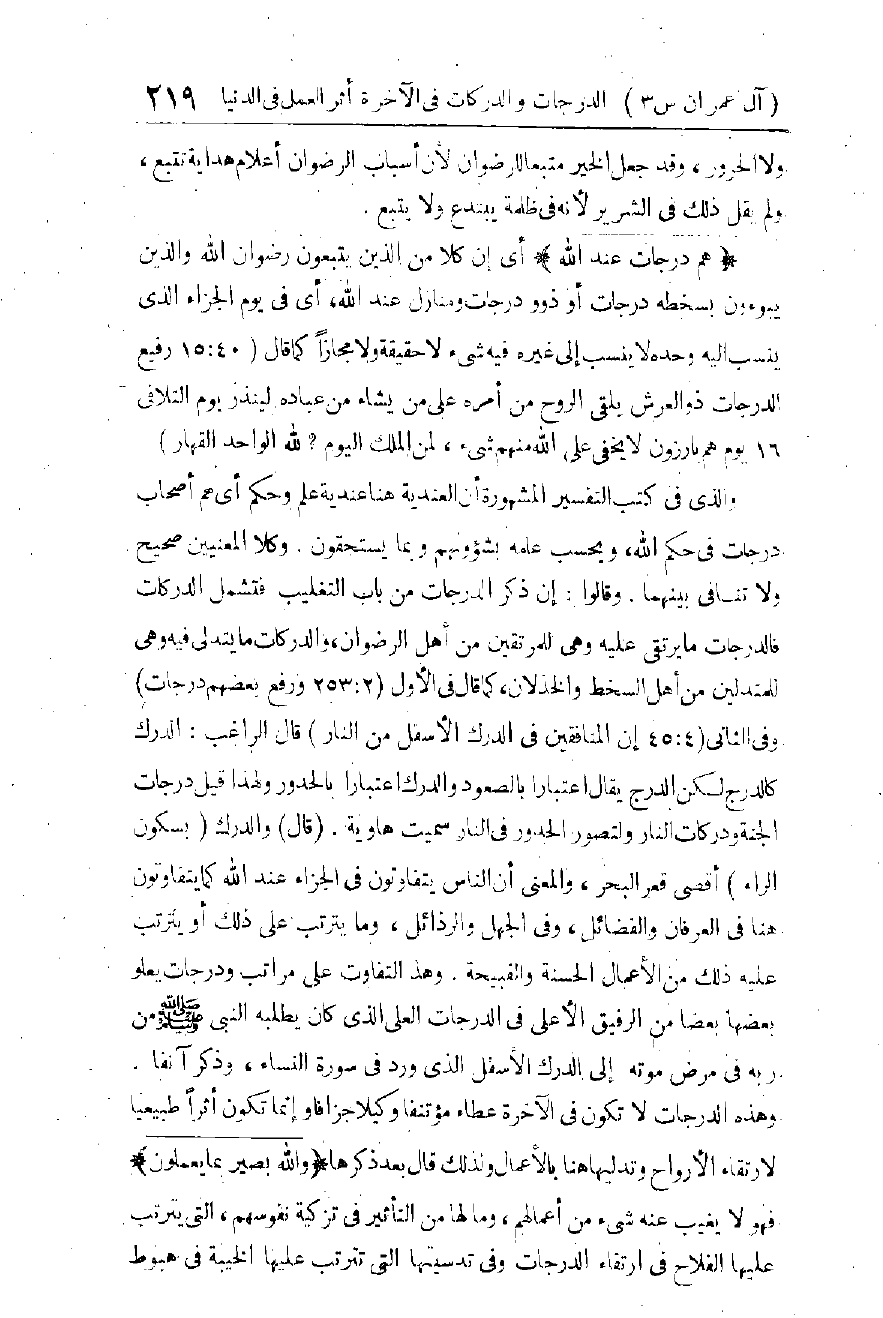 ( آل عمران س ٣ ) الدرجات والدركات فى الآخرة أثر العمل فى الدنيا ٢١٩
ولا الحرور ، وقد جعل الخير متبعا للرضوان لأن أسباب الرضوان أعلام هداية تتبع ،
ولم يقل ذلك فى الشرير لأنه فى ظلمة يبتدع ولا يتبع .
﴿ هم درجات عند الله ﴾ أى إن كلا من الذين يتبعون رضوان الله والذين
يبوءون بسخطه درجات أو ذوو درجات ومنازل عند الله، أى فى يوم الجزاء الذى
ينسب اليه وحده لا ينسب إلى غيره فيه شىء لا حقيقة ولا مجازاً كما قال ( ٤٠:١٥ رفيع
الدرجات ذو العرش يلقى الروح من أمره على من يشاء من عباده لينذر يوم التلاقى
١٦ يوم هم بارزون لا يخفى على الله منهم شىء ، لمن الملك اليوم ? لله الواحد القهار )
والذى فى كتب التفسير المشهورة أن العندية هنا عندية علم وحكم أى هم أصحاب
درجات فى حكم الله، وبحسب علمه بشؤونهم وبما يستحقون . وكلا المعنيين صحيح
ولا تنافى بينهما . وقالوا : إن ذكر الدرجات من باب التغليب فتشمل الدركات
فالدرجات ما يرتقى عليه وهى للمرتقين من أهل الرضوان، والدركات ما يتدلى فيه وهى
للمتدلين من أهل السخط والخذلان، كما قال فى الأول (٢:٢٥٣ ورفع بعضهم درجات)
وفى الثانى (٤:٤٥ إن المنافقين فى الدرك الأسفل من النار ) قال الراغب : الدرك
كالدرج لكن الدرج يقال اعتبارا بالصعود والدرك اعتبارا بالحدور ولهذا قيل درجات
الجنة ودركات النار ولتصور الحدور فى النار سميت هاوية . (قال) والدرك ( بسكون
الراء ) أقصى قعر البحر ، والمعنى أن الناس يتفاوتون فى الجزاء عند الله كما يتفاوتون
هنا فى العرفان والفضائل ، وفى الجهل والرذائل ، وما يترتب على ذلك أو يترتب
عليه ذلك من الأعمال الحسنة والقبيحة . وهذ التفاوت على مراتب ودرجات يعلو
بعضها بعضا من الرفيق الأعلى فى الدرجات العلى الذى كان يطلبه النبى ﷺ من
ربه فى مرض موته إلى الدرك الأسفل الذى ورد فى سورة النساء ، وذكر آنفا .
وهذه الدرجات لا تكون فى الآخرة عطاء مؤتنفا وكيلا جزافا وإنما تكون أثراً طبيعيا
لارتقاء الأرواح وتدليها هنا بالأعمال ولذلك قال بعد ذكرها ﴿والله بصير بما يعملون﴾
فهو لا يغيب عنه شىء من أعمالهم ، وما لها من التأثير فى تزكية نفوسهم ، التى يترتب
عليها الفلاح فى ارتقاء الدرجات وفى تدسيتها التى تترتب عليها الخيبة فى هبوط